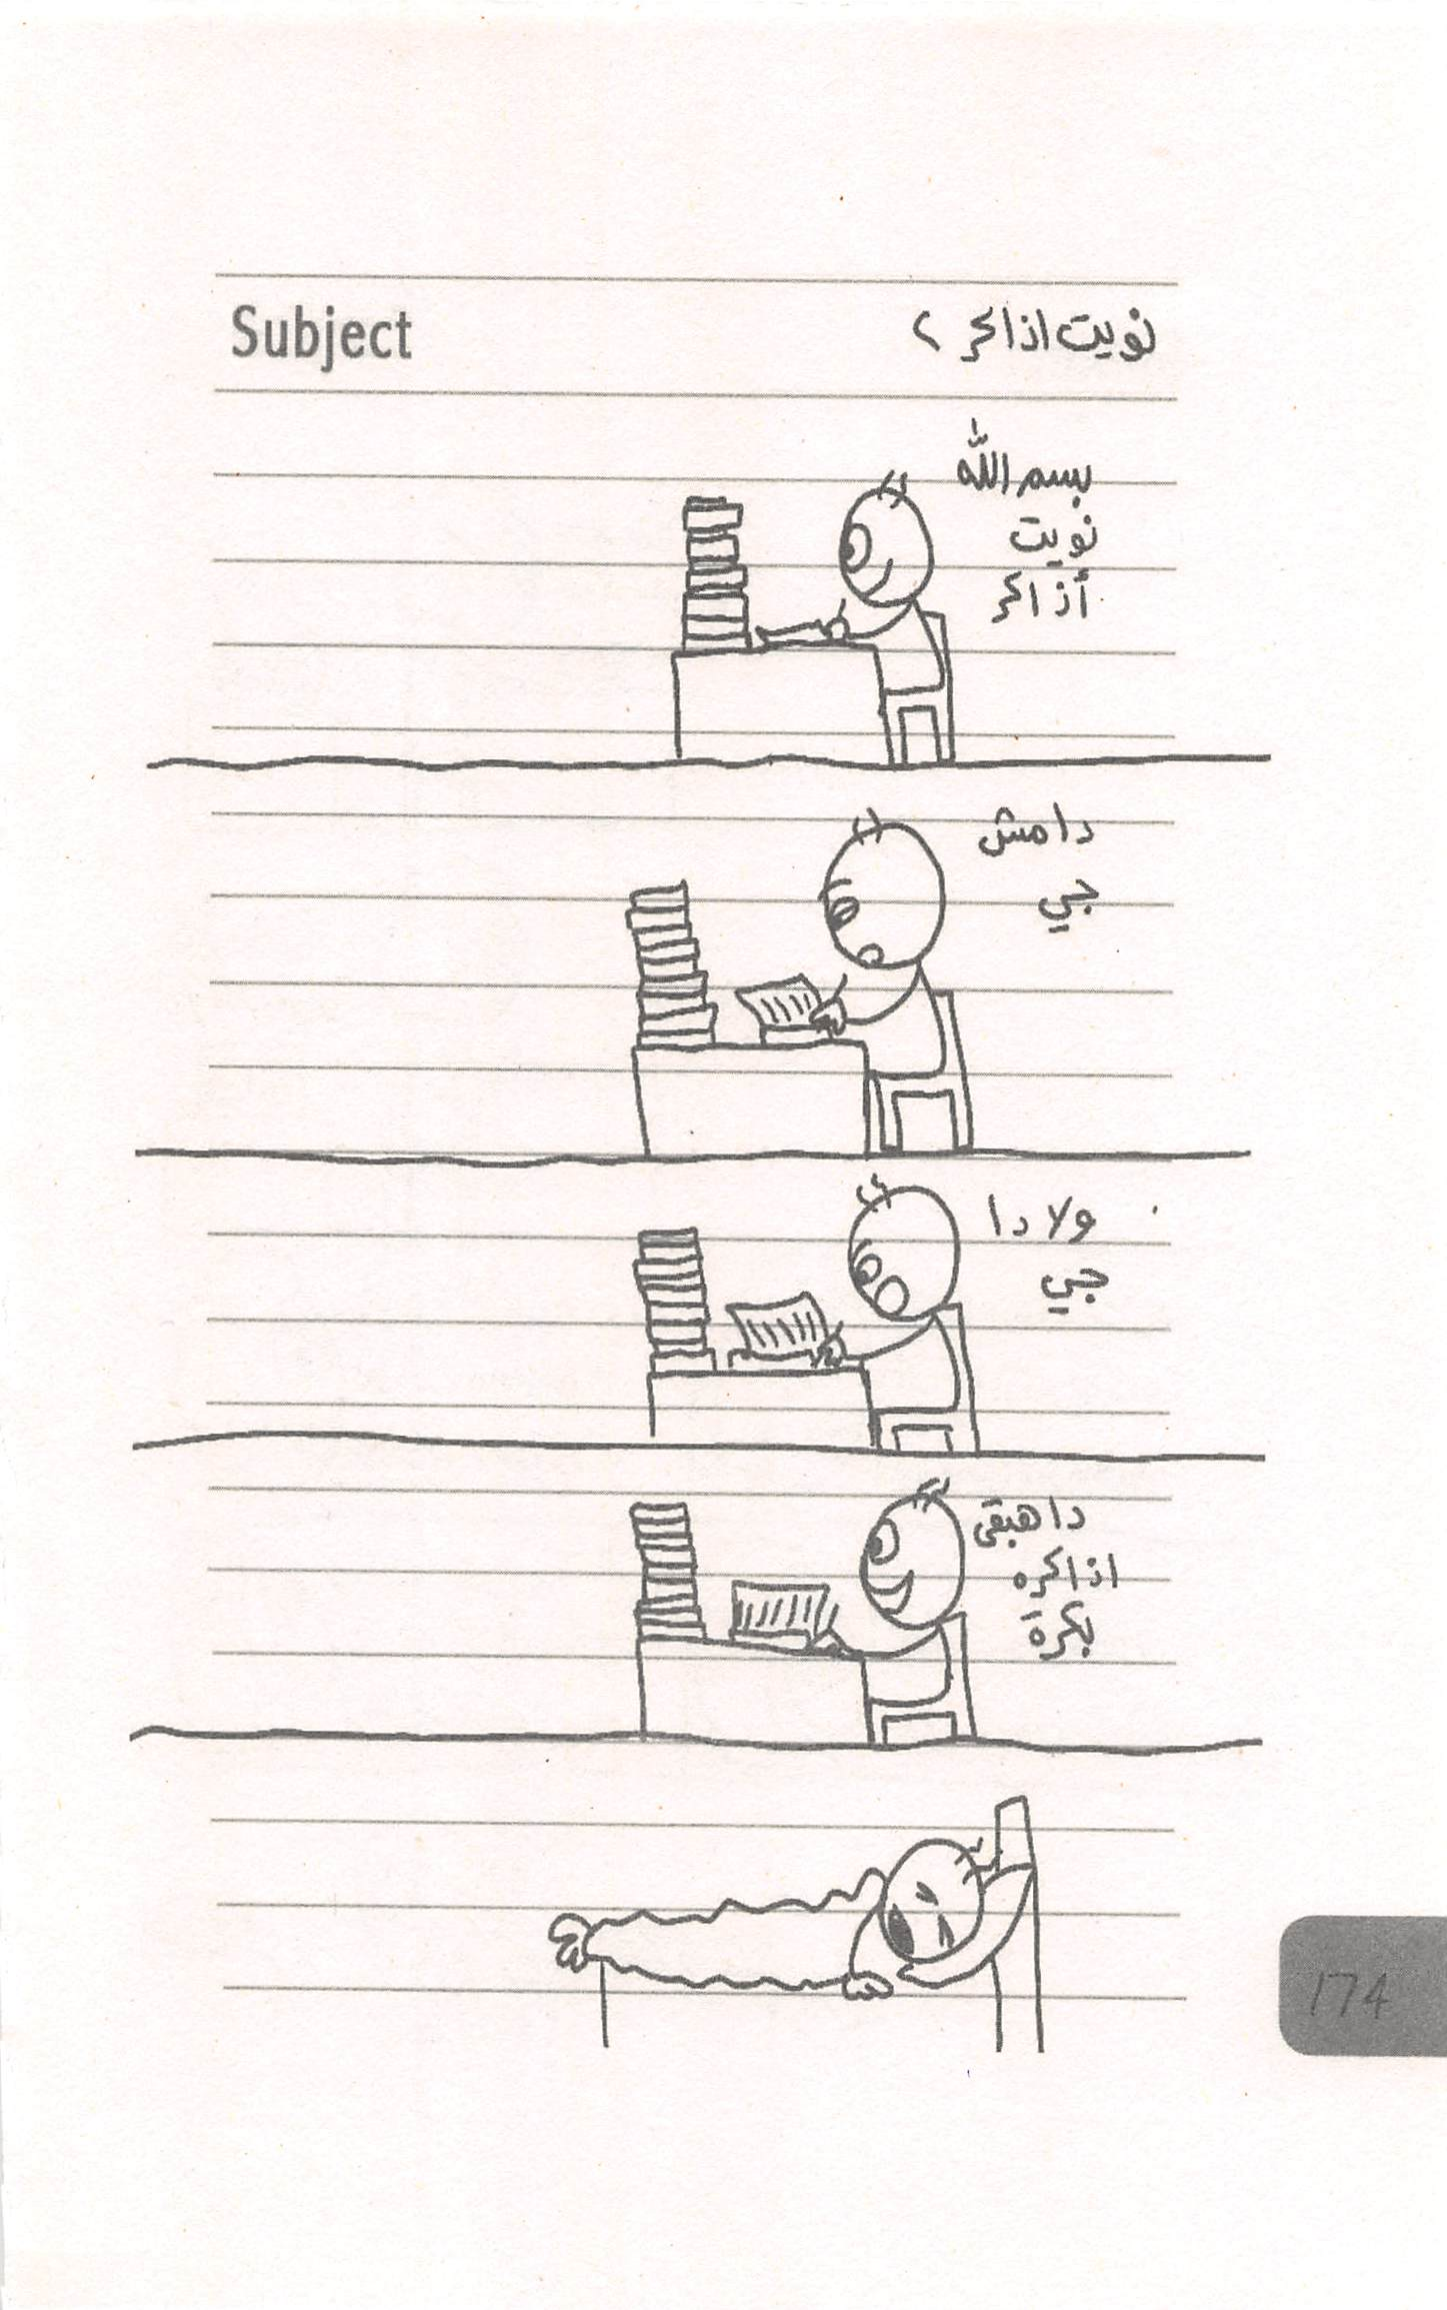 Subject
نويت اذاكر ٢
بسم الله
نويت
أذاكر
دا مش
جي
ولا دا
جي
دا هبقى
اذاكره
بكرة
174